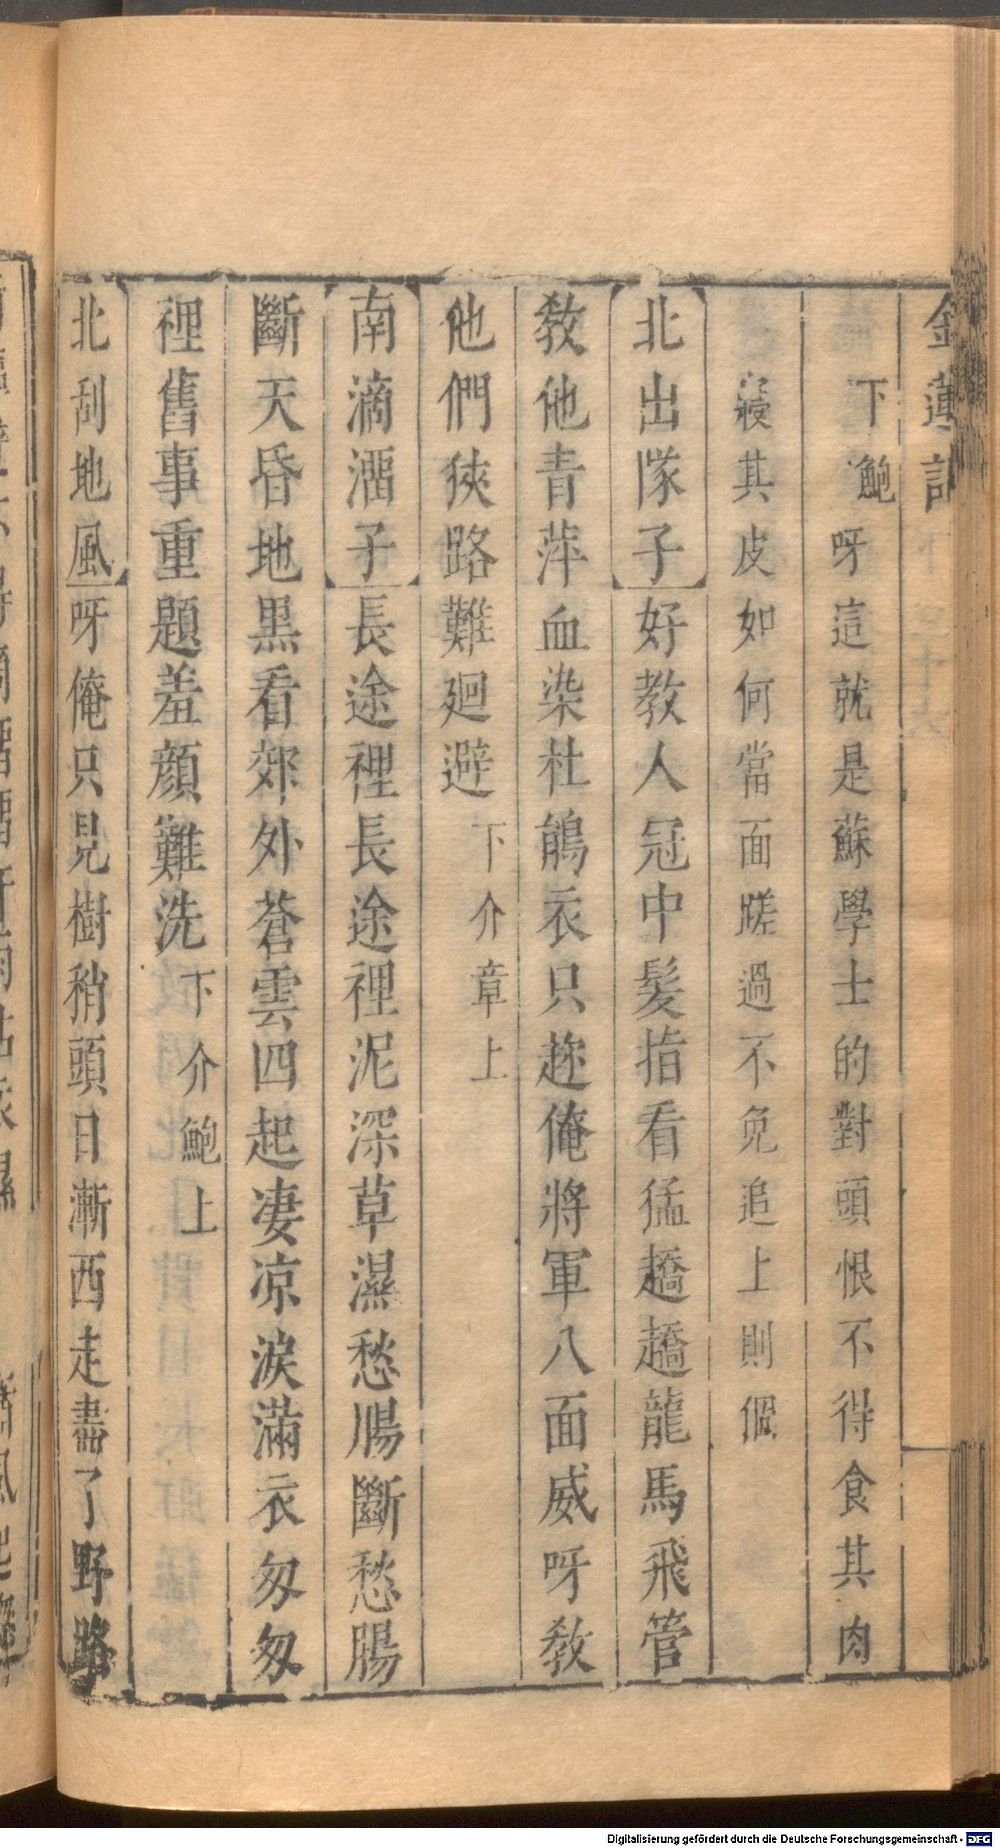 金蓮記
下鮑呀這就是蘇學士的對頭恨不得食其肉
寢其皮如何當面蹉過不免追上則個
北出隊子好教人冠中髮指看猛趫趫龍馬飛管
教他青萍血染杜鵑衣只趂俺將軍八面威呀教
他們狹路難廻避下介章上
南滴溜子長途裡長途裡泥深草濕愁腸斷愁腸
斷天昏地黑看郊外蒼雲四起凄凉淚滿衣匆匆
裡舊事重題羞顔難洗下介鮑上
北刮地風呀俺只見樹稍頭日漸西走盡了野路
Digitalisierung gefördert durch die Deutsche Forschungsgemeinschaft - DFG